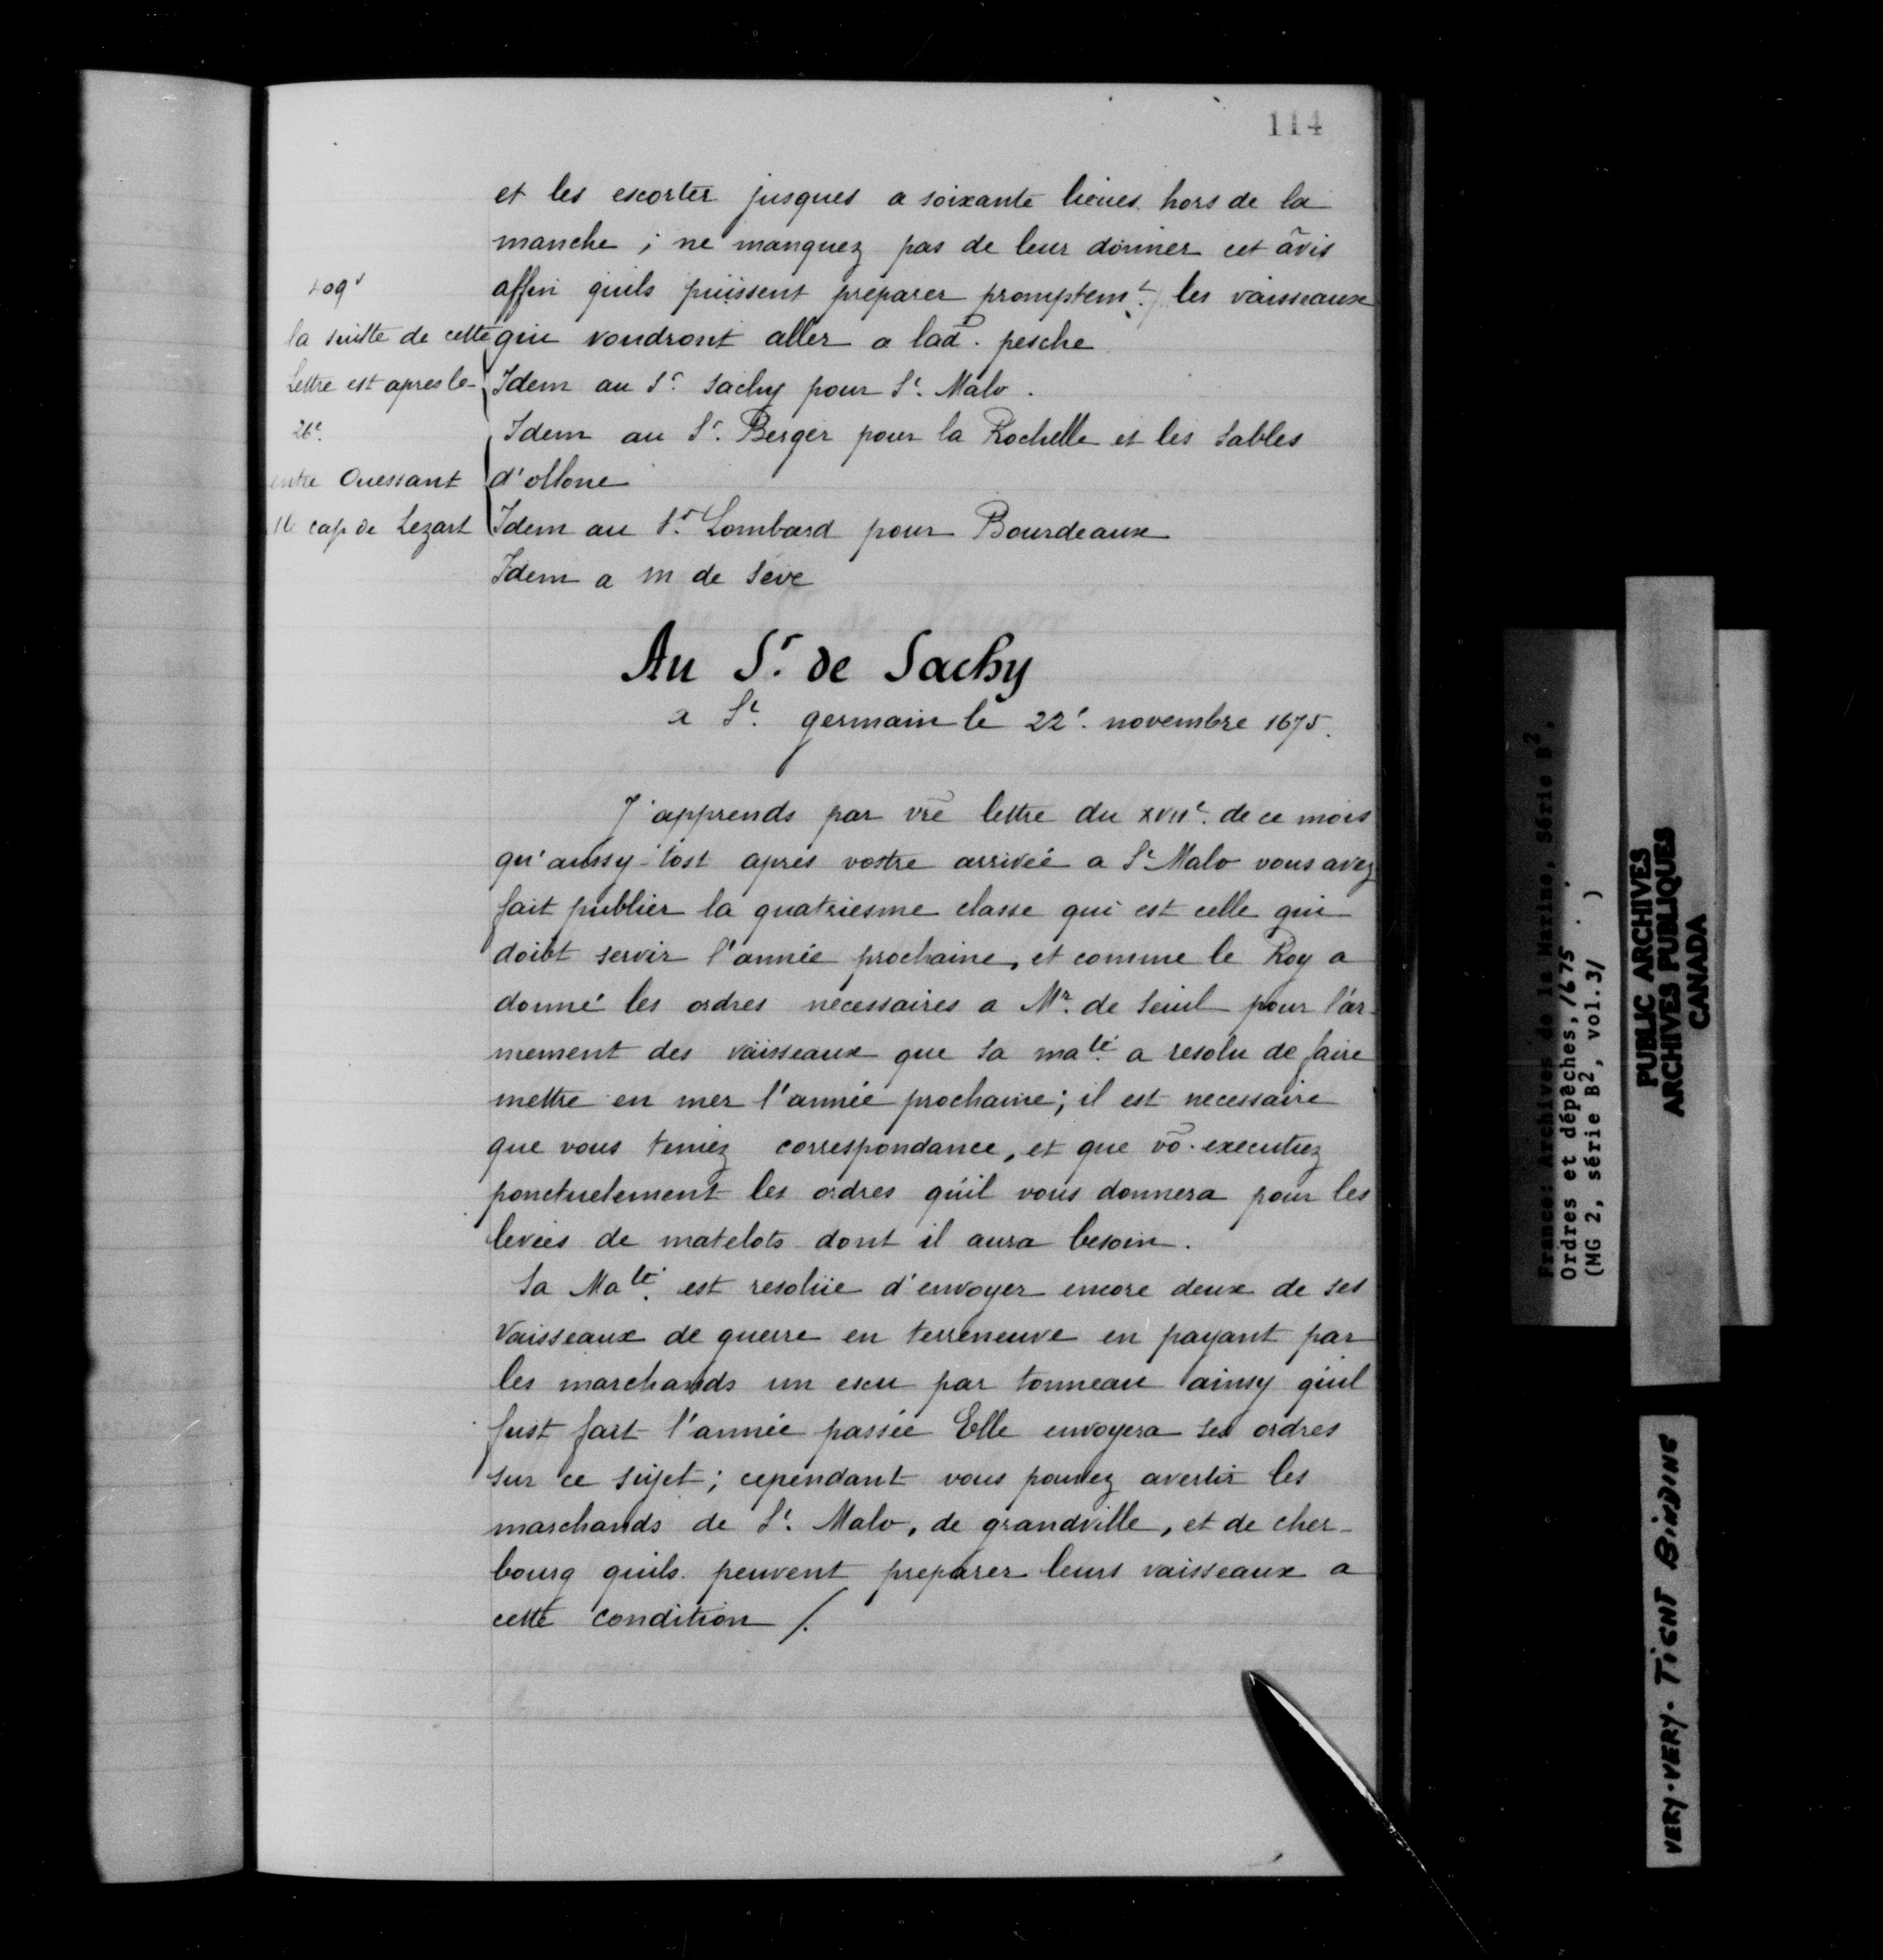 114
et les escorter jusques a soixante lieues hors de la
manche ; ne manquez pas de leur donner cet avis
affin quils puissent preparer promptemt. les vaisseaux
qui voudront aller a lad. pesche
la suitte de cette
lettre est apres le
26e.
entre Ouessant
le cap de Lezart
Idem au Sr. Sachy pour St. Malo.
Idem au Sr. Berger pour la Rochelle et les Sables
d'ollone
Idem au Sr. Lombard pour Bourdeaux
Idem a m de Seve
Au Sr. de Sachy
a St. germain le 22e. novembre 1675.
J'apprends par vre lettre du XVIIe. de ce mois
qu'aussy-tost apres vostre arrivée a St Malo vous avez
fait publier la quatriesme classe qui est celle qui
doibt servir l'année prochaine, et comme le Roy a
donné les ordres necessaires a Mr. de Seuil pour l'ar-
mement des vaisseaux que Sa maté. a resolu de faire
mettre en mer l'année prochaine; il est necessaire
que vous teniez correspondance, et que vo. executiez
ponctuelement les ordres quil vous donnera pour les
levées de matelots dont il aura besoin.
Sa Maté. est resolüe d'envoyer encore deux de ses
Vaisseaux de guerre en terreneuve en payant par
les marchands un escu par tonneau ainsy quil
fust fait l'année passée Elle envoyera ses ordres
sur ce sujet; cependant vous pouvez avertir les
marchands de St. Malo, de grandville, et de cher-
bourg quils peuvent preparer leurs vaisseaux a
cette condition /.
France: Archives de la Marine, Série B2,
Ordres et dépêches, 1675 .
(MG 2, série B2, vol. 31 )
PUBLIC ARCHIVES
ARCHIVES PUBLIQUES
CANADA
VERY-VERY. TIGHT BINDING